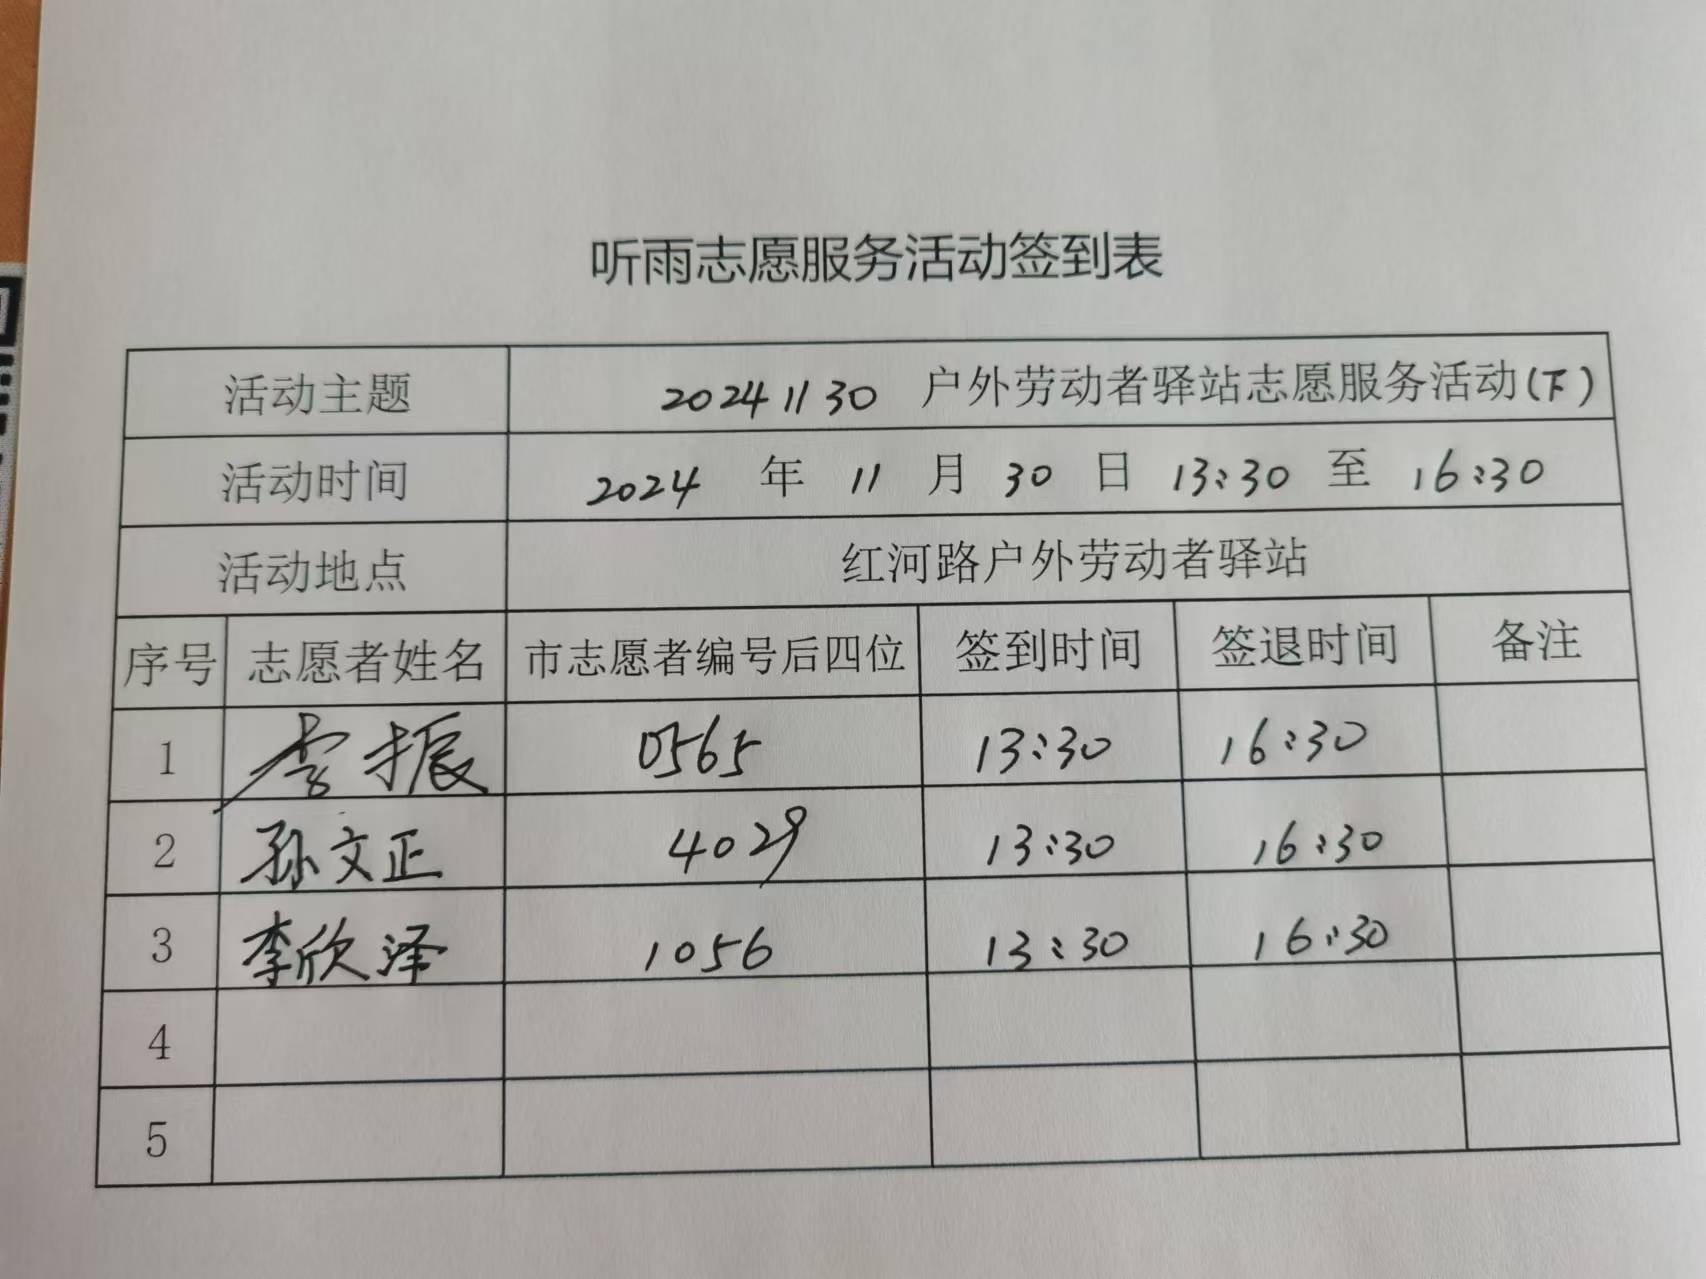 听雨志愿服务活动签到表
活动主题 20241130 户外劳动者驿站志愿服务活动(下)
活动时间 2024 年 11 月 30 日 13:30 至 16:30
活动地点 红河路户外劳动者驿站
序号 志愿者姓名 市志愿者编号后四位 签到时间 签退时间 备注
1 李振 0565 13:30 16:30
2 孙文正 4029 13:30 16:30
3 李欣泽 1056 13:30 16:30
4
5